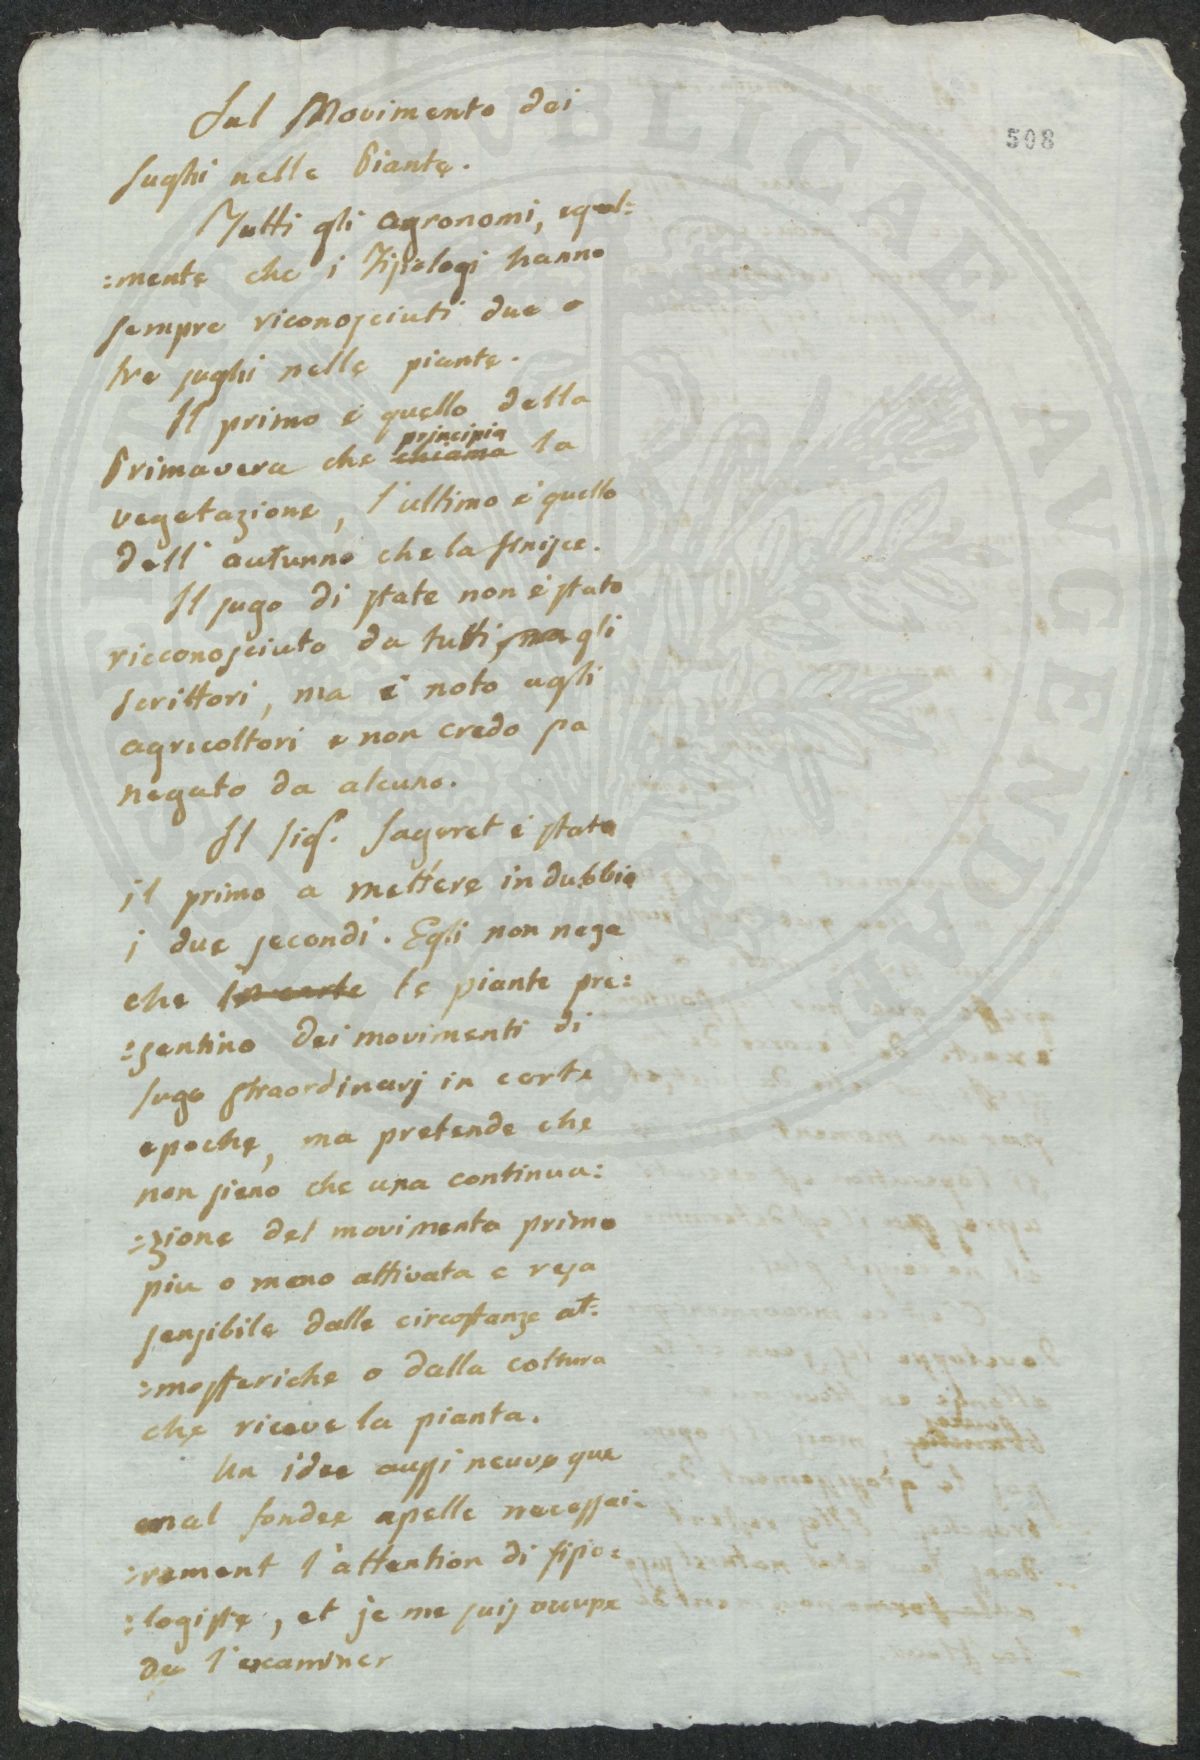 508
Sul Movimento dei
sughi nelle Piante.
Tutti gli agronomi, egual:
:mente che i Fisologi hanno
sempre riconosciuti due o
tre sughi nelle piante.
Il primo è quello della
principia
Primavera che chiama la
vegetazione, l'ultimo è quello
dell'autunno che la finisce.
Il sugo di state non è stato
ricconosciuto da tutti gli
scrittori, ma è noto agli
agricoltori e non credo sia
negato da alcuno.
Il Sigr. Sageret è stato
il primo a mettere in dubbio
i due secondi. Egli non nega
che in certe le piante pre:
:sentino dei movimenti di
sugo straordinarj in certe
epoche, ma pretende che
non sieno che una continua:
:zione del movimento primo
piu o meno attivata e resa
sensibile dalle circostanze at:
:mosferiche o dalla coltura
che riceve la pianta.
Un idee aussi neuve que
mal fondee apelle necessai:
:rement l'attention di fisio:
:logiste, et je me suis occupe
de l'examiner